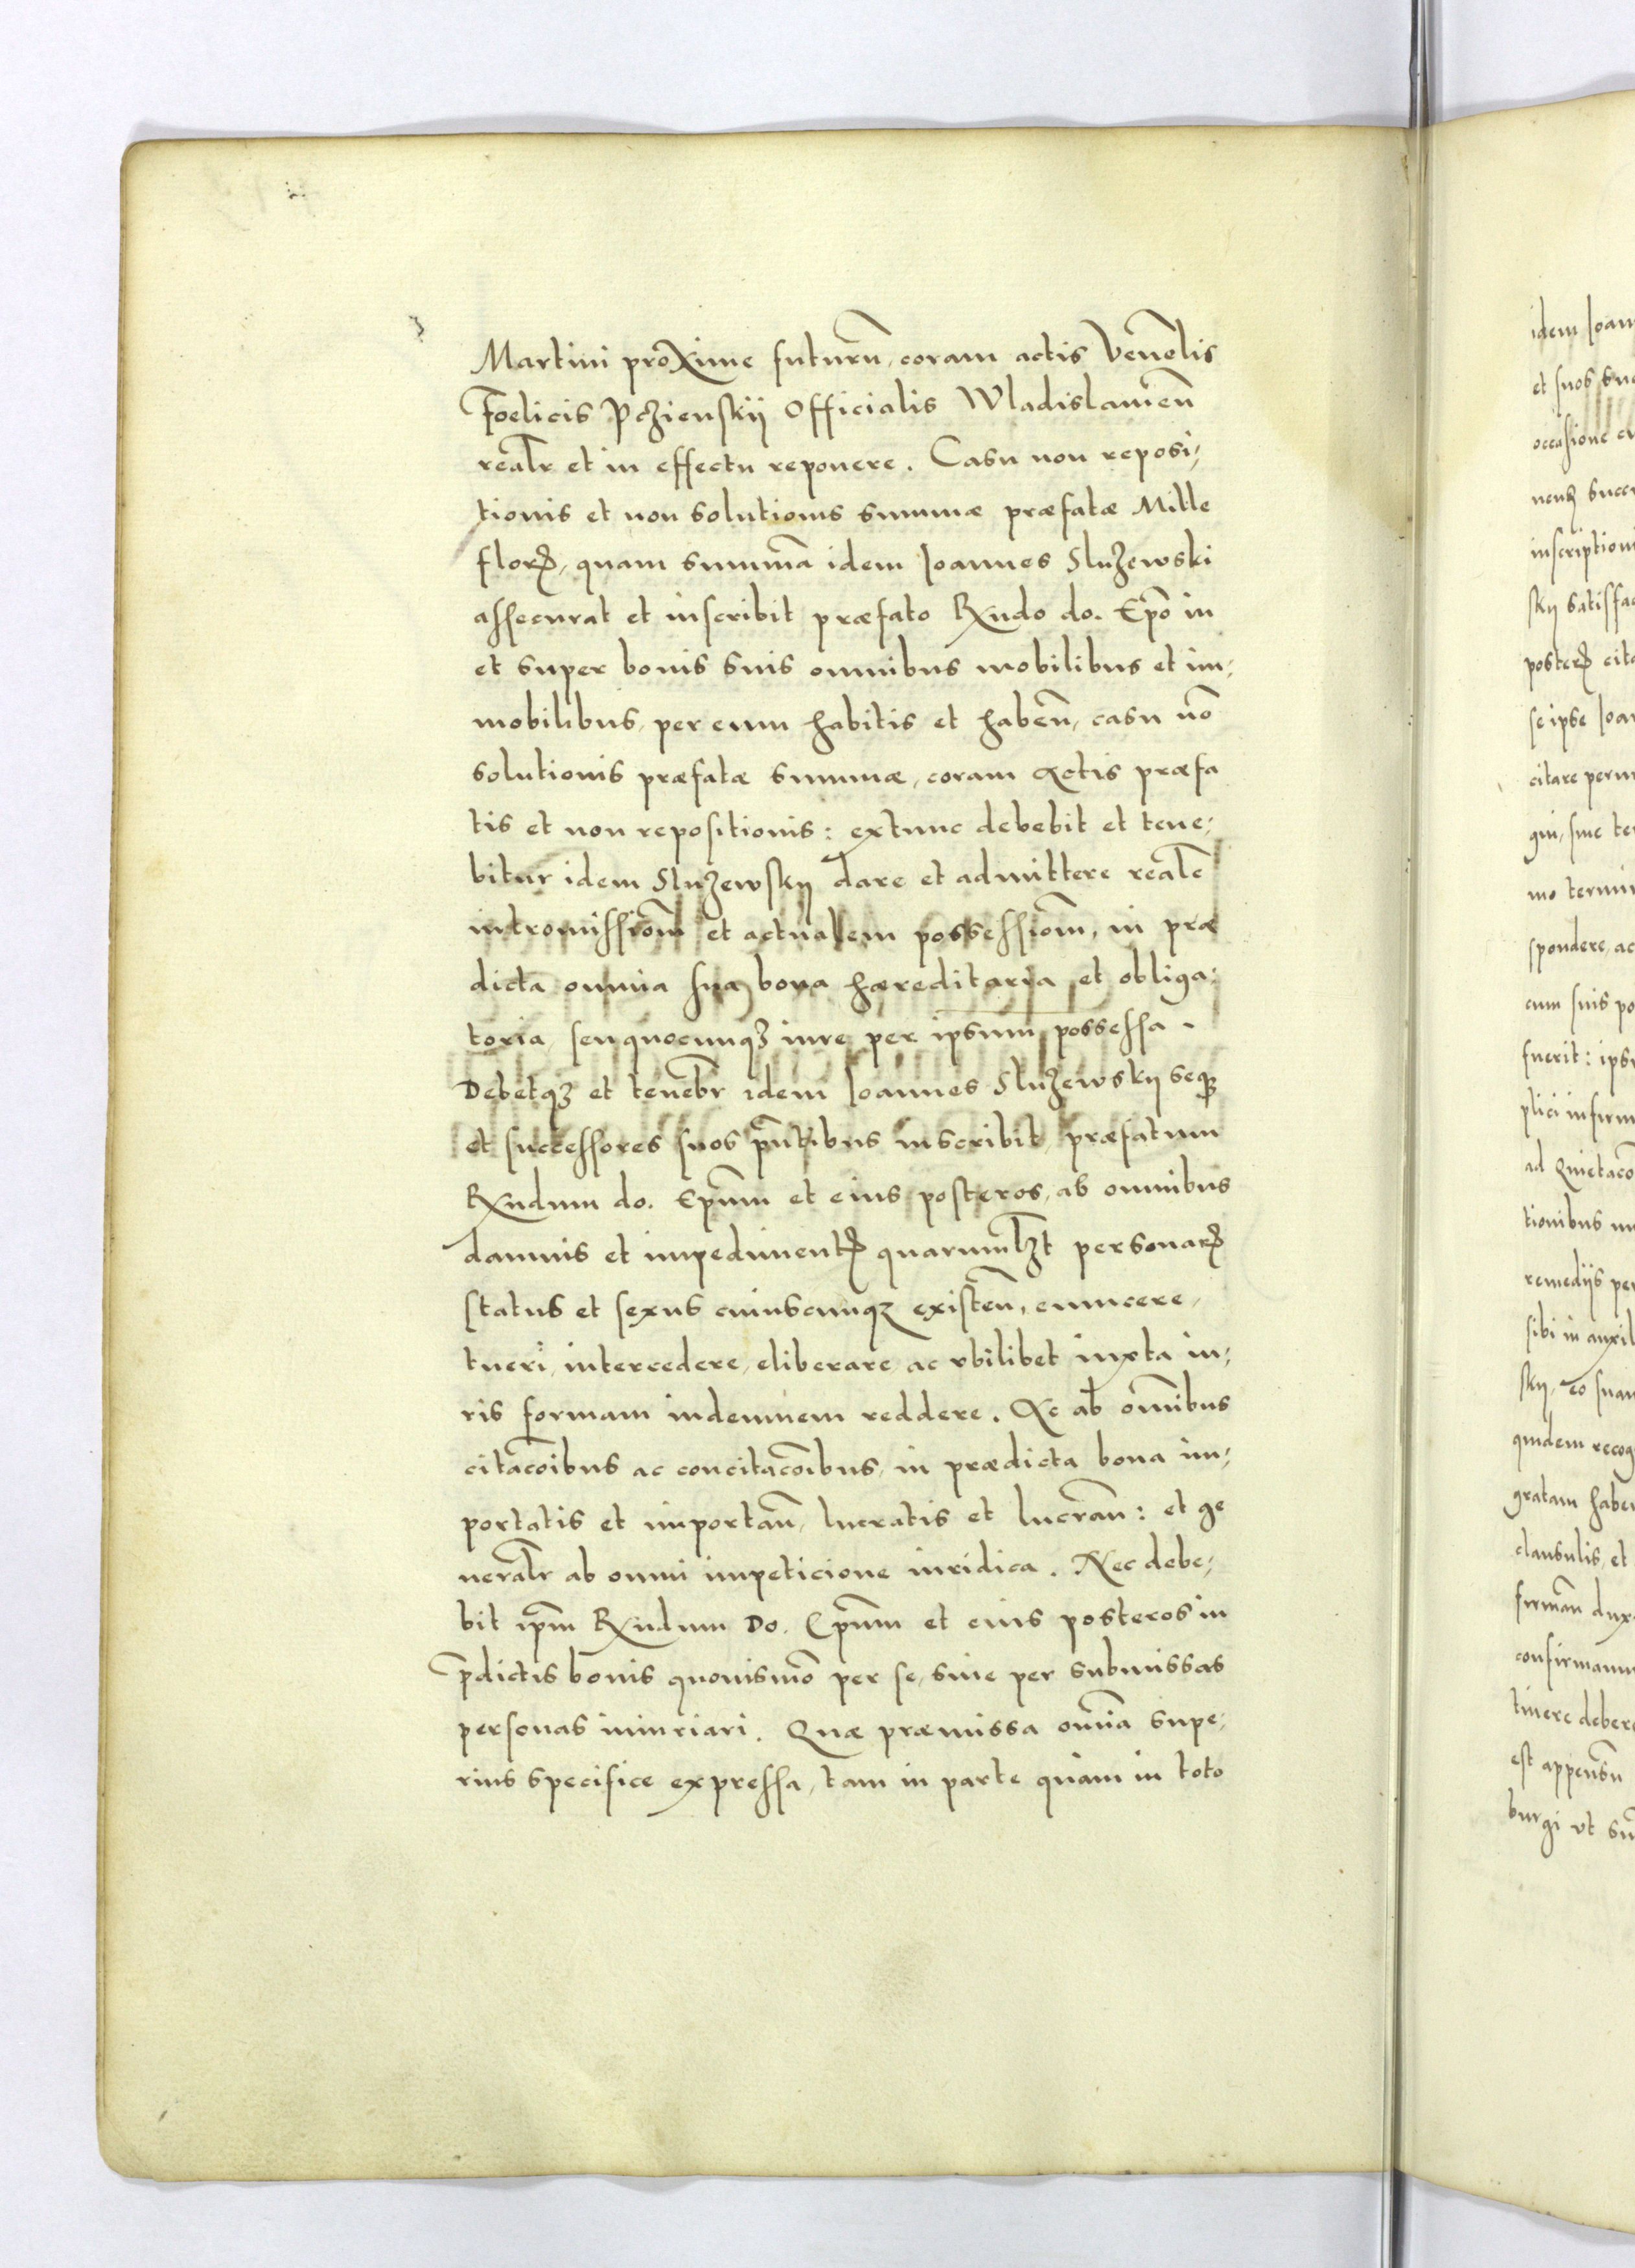 Martini proxime futurū, coram actis Venēlis
Foelicis Pczienskij Officialis Wladislauień
realr̄ et in effectu reponere. Casu non reposi;
tionis et non solutionis summæ præfatæ Mille
florꝝ, quam summā idem Joannes Sluzewski
assecurat et inscribit præfato Rxndo do. Epō in
et super bonis suis omnibus mobilibus et im;
mobilibus, per eum habitis et habeñ, casu nō
solutionis præfatæ summæ, coram Actis præfa
tis et non repositionis: extunc debebit et tene;
bitur idem Sluzewskij dare et admittere realē
intromissiōm et actualem possessiōm, in præ
dicta omnia sua bona hæreditaria et obliga;
toria, seu quocunqꝫ iure per ipsum possessa.
Debetqꝫ et tenebr̄ idem Joannes Sluzewskij seqꝫ
et successores suos p̄ntibus inscribit, præfatum
Rxndum do. Ep̄um et eius posteros, ab omnibus
damnis et impedimentꝭ quarumlꝫt personarꝝ
status et sexus cuiuscunqꝫ existeñ, euincere,
tueri, intercedere, eliberare, ac vbilibet iuxta iu;
ris formam indemnem reddere. Ac ab om̄ibus
citacōibus ac concitacōibus, in prædicta bona im;
portatis et importañ, lucratis et lucrañ: et ge
neralr̄ ab omni impeticione iuridica. Nec debe;
bit ip̄m Rxndum Do. Ep̄um et eius posteros in
p̄dictis bonis quouismō per se, siue per submissas
personas iniuriari. Quæ præmissa om̄ia supe;
rius specifice expressa, tam in parte quam in toto
idem Joan
et suos suc
occasione
inscription
skij satisfac
posterꝝ cita
se ipse Joan
citare perm
qui, sine ter
mo termin
spondere, ac
cum suis po
fuerit: ips
plici in firm
ad Quietacō
tionibus
remediis per
sibi in auxil
skij, eo suam
quidem recog
gratam haben
clausulis, et
firmañ dux
confirmam
tinere debere
est appensū
burgi vt su